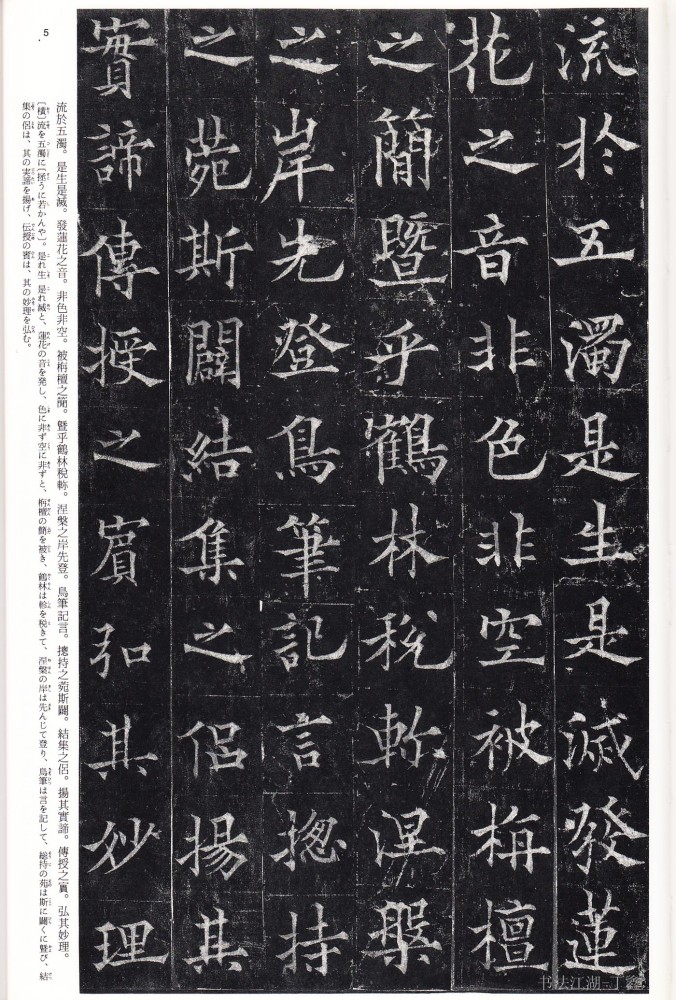 流於五濁是生是滅發蓮
花之音非色非空被栴檀
之簡暨乎鶴林稅軫涅槃
之岸先登鳥筆記言揔持
之菀斯闢結集之侶揚其
實諦傳授之賓弘其妙理
流於五濁。是生是滅。發蓮花之音。非色非空。被栴檀之簡。暨乎鶴林稅軫。涅槃之岸先登。鳥筆記言。摠持之菀斯闢。結集之侶。揚其實諦。傳授之賓。弘其妙理。
〔横〕流を五濁に〔拯うに若かんや〕。是れ生 是れ滅と、蓮花の音を発し、色に非ず空に非ずと、栴檀の簡を被き、鶴林は軫を税きて、涅槃の岸は先んじて登り、鳥筆は言を記して、総持の苑は斯に闢くに曁び、結
集の侶は、其の実諦を揚げ、伝授の賓は、其の妙理を弘む。
5
书法江湖